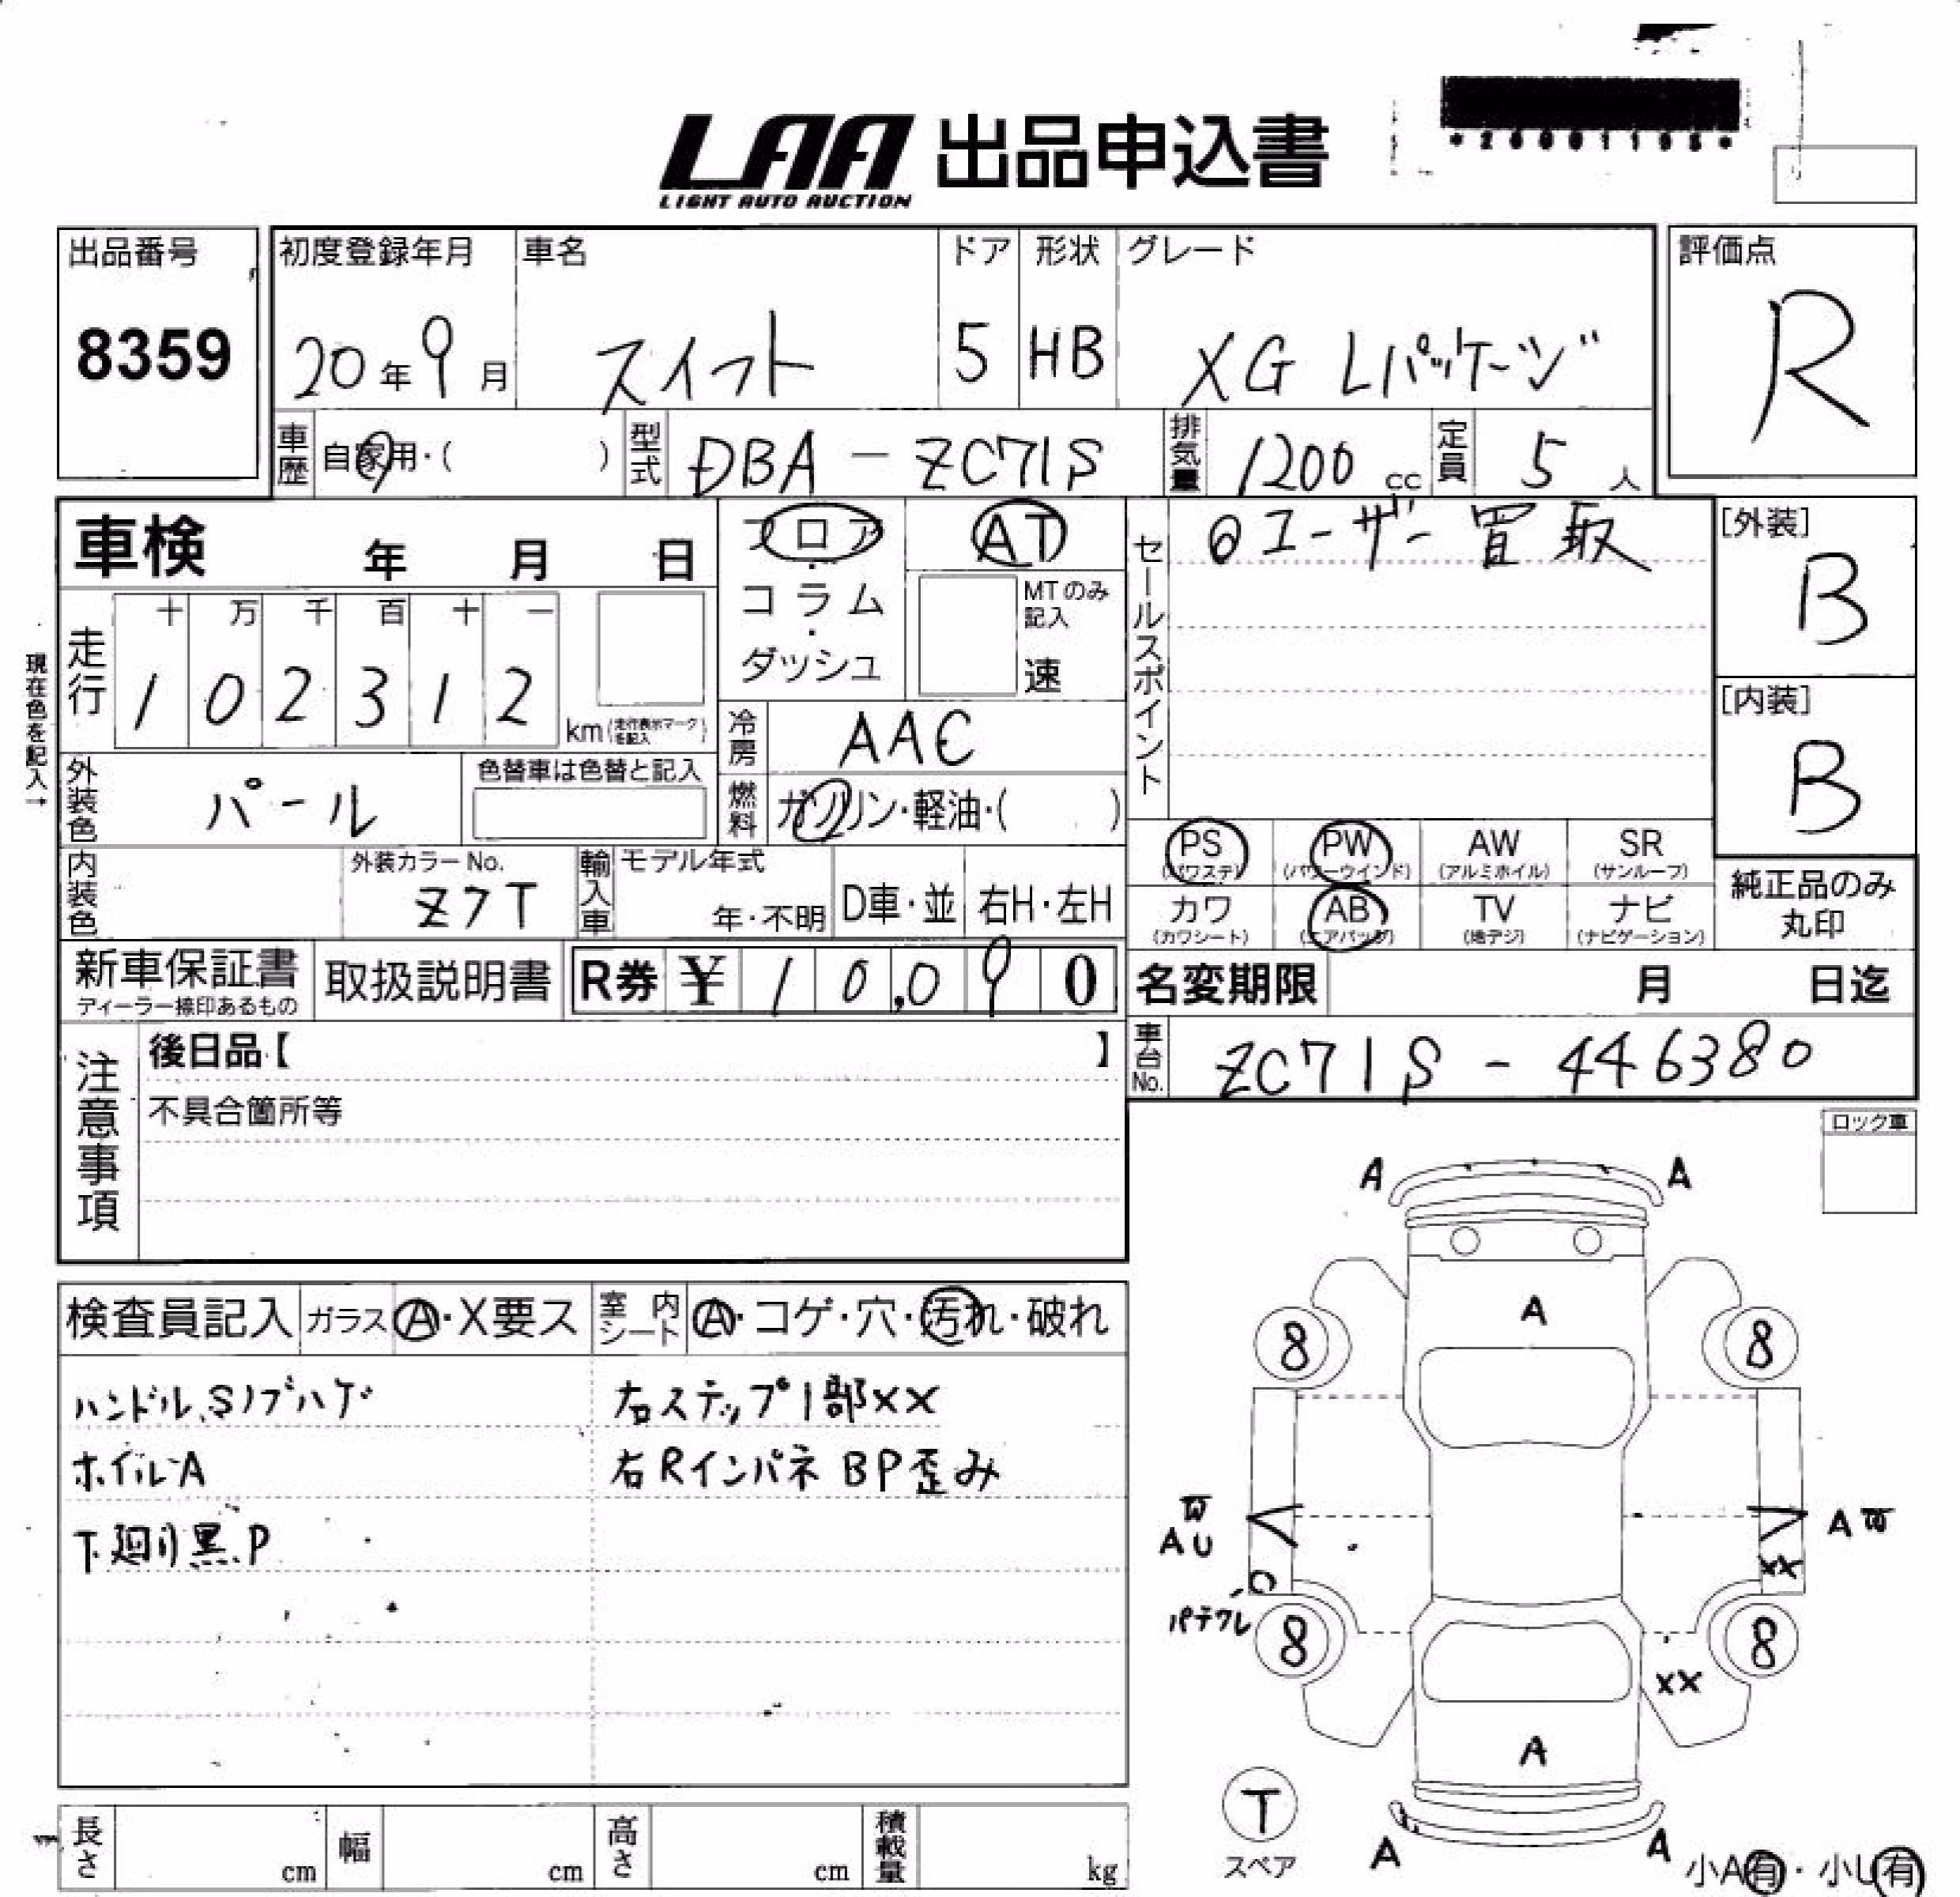 LAA 出品申込書
LIGHT AUTO AUCTION
出品番号
8359
初度登録年月
20年9月
車名
スイフト
ドア
5
形状
HB
グレード
XG Lパッケージ
評価点
R
車歴 自家用・( )
型式 DBA-ZC71S
排気量 1200 cc
定員 5 人
車検 年 月 日
フロア・コラム・ダッシュ
AT
MTのみ記入
速
セールスポイント
◎ユーザー買取
[外装]
B
[内装]
B
現在色を記入→
走行
十 万 千 百 十 一
1 0 2 3 1 2
km (走行表示マークを記入)
冷房 AAC
外装色 パール
色替車は色替と記入
燃料 ガソリン・軽油・( )
PS (パワステ)
PW (パワーウインド)
AW (アルミホイル)
SR (サンルーフ)
カワ (カワシート)
AB (エアバッグ)
TV (地デジ)
ナビ (ナビゲーション)
純正品のみ
丸印
内装色
外装カラーNo.
Z7T
輸入車
モデル年式
年・不明
D車・並
右H・左H
新車保証書
ディーラー捺印あるもの
取扱説明書
R券 ¥ 1 0,0 9 0
名変期限 月 日迄
車台No. ZC71S-446380
注意事項
後日品【 】
不具合箇所等
ロック車
検査員記入
ガラス A・X要ス
室内シート A・コゲ・穴・汚れ・破れ
ハンドル、Sノブハゲ
右ステップ1部XX
ホイルA
右Rインパネ BP歪み
下廻り黒P
A A
A
8 8
W
A U
A W
XX
パテクレ
8 8
XX
A
T
スペア
A A
小A有・小U有
長さ cm
幅 cm
高さ cm
積載量 kg